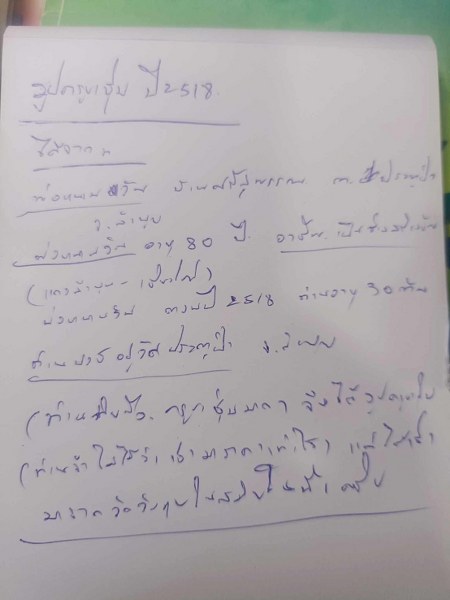 รูปครูบาชุ่ม ปี 2518.
ได้จาก
พ่อหนานวัน บ้านศรีสุพรรณ ต. ประตูป่า
จ. ลำพูน
พ่อหนานวัน อายุ 80 ปี. อาชีพ. เป็น
(แถวลำพูน - เชียงใหม่)
พ่อหนานวัน ตอนปี 2518 ท่านอายุ 30 กว่า
ท่านบวชอยู่วัดประตูป่า จ. ลำพูน
(ท่าน ครูบาชุ่มมาก จึงได้รูป
(ท่านจำไม่ได้ว่า เช่ามาราคาเท่าไร) แต่ได้เช่า
มาจากวัดวังมุยในสมัยนั้น ครับ